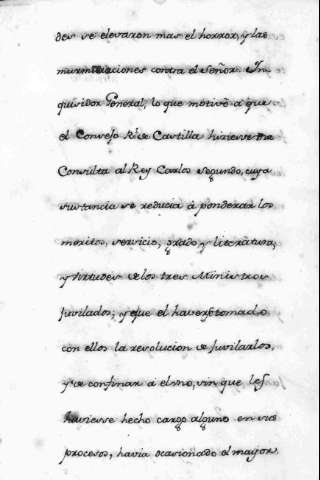 des se elevaron mas el horror, y las
murmuraciones contra el Señor In
quisidor General, lo que motivó a que
el Consejo Rl. de Castilla hiciesse una
Consulta al Rey Carlos segundo, cuya
sustancia se reducia á ponderar los
meritos, servicio, grado, y literatura,
y virtudes de los tres Ministros
Juvilados; y que el haverse tomado
con ellos la revolucion de Juvilarlos,
y de confinar á el uno, sin que les
huviesse hecho cargo alguno en sus
procesos, havia ocasionado el mayor